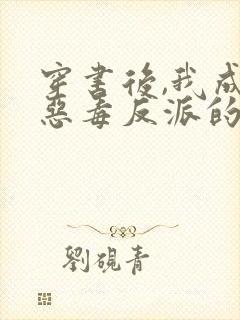 穿書後,我成
惡毒反派的
劉硯青